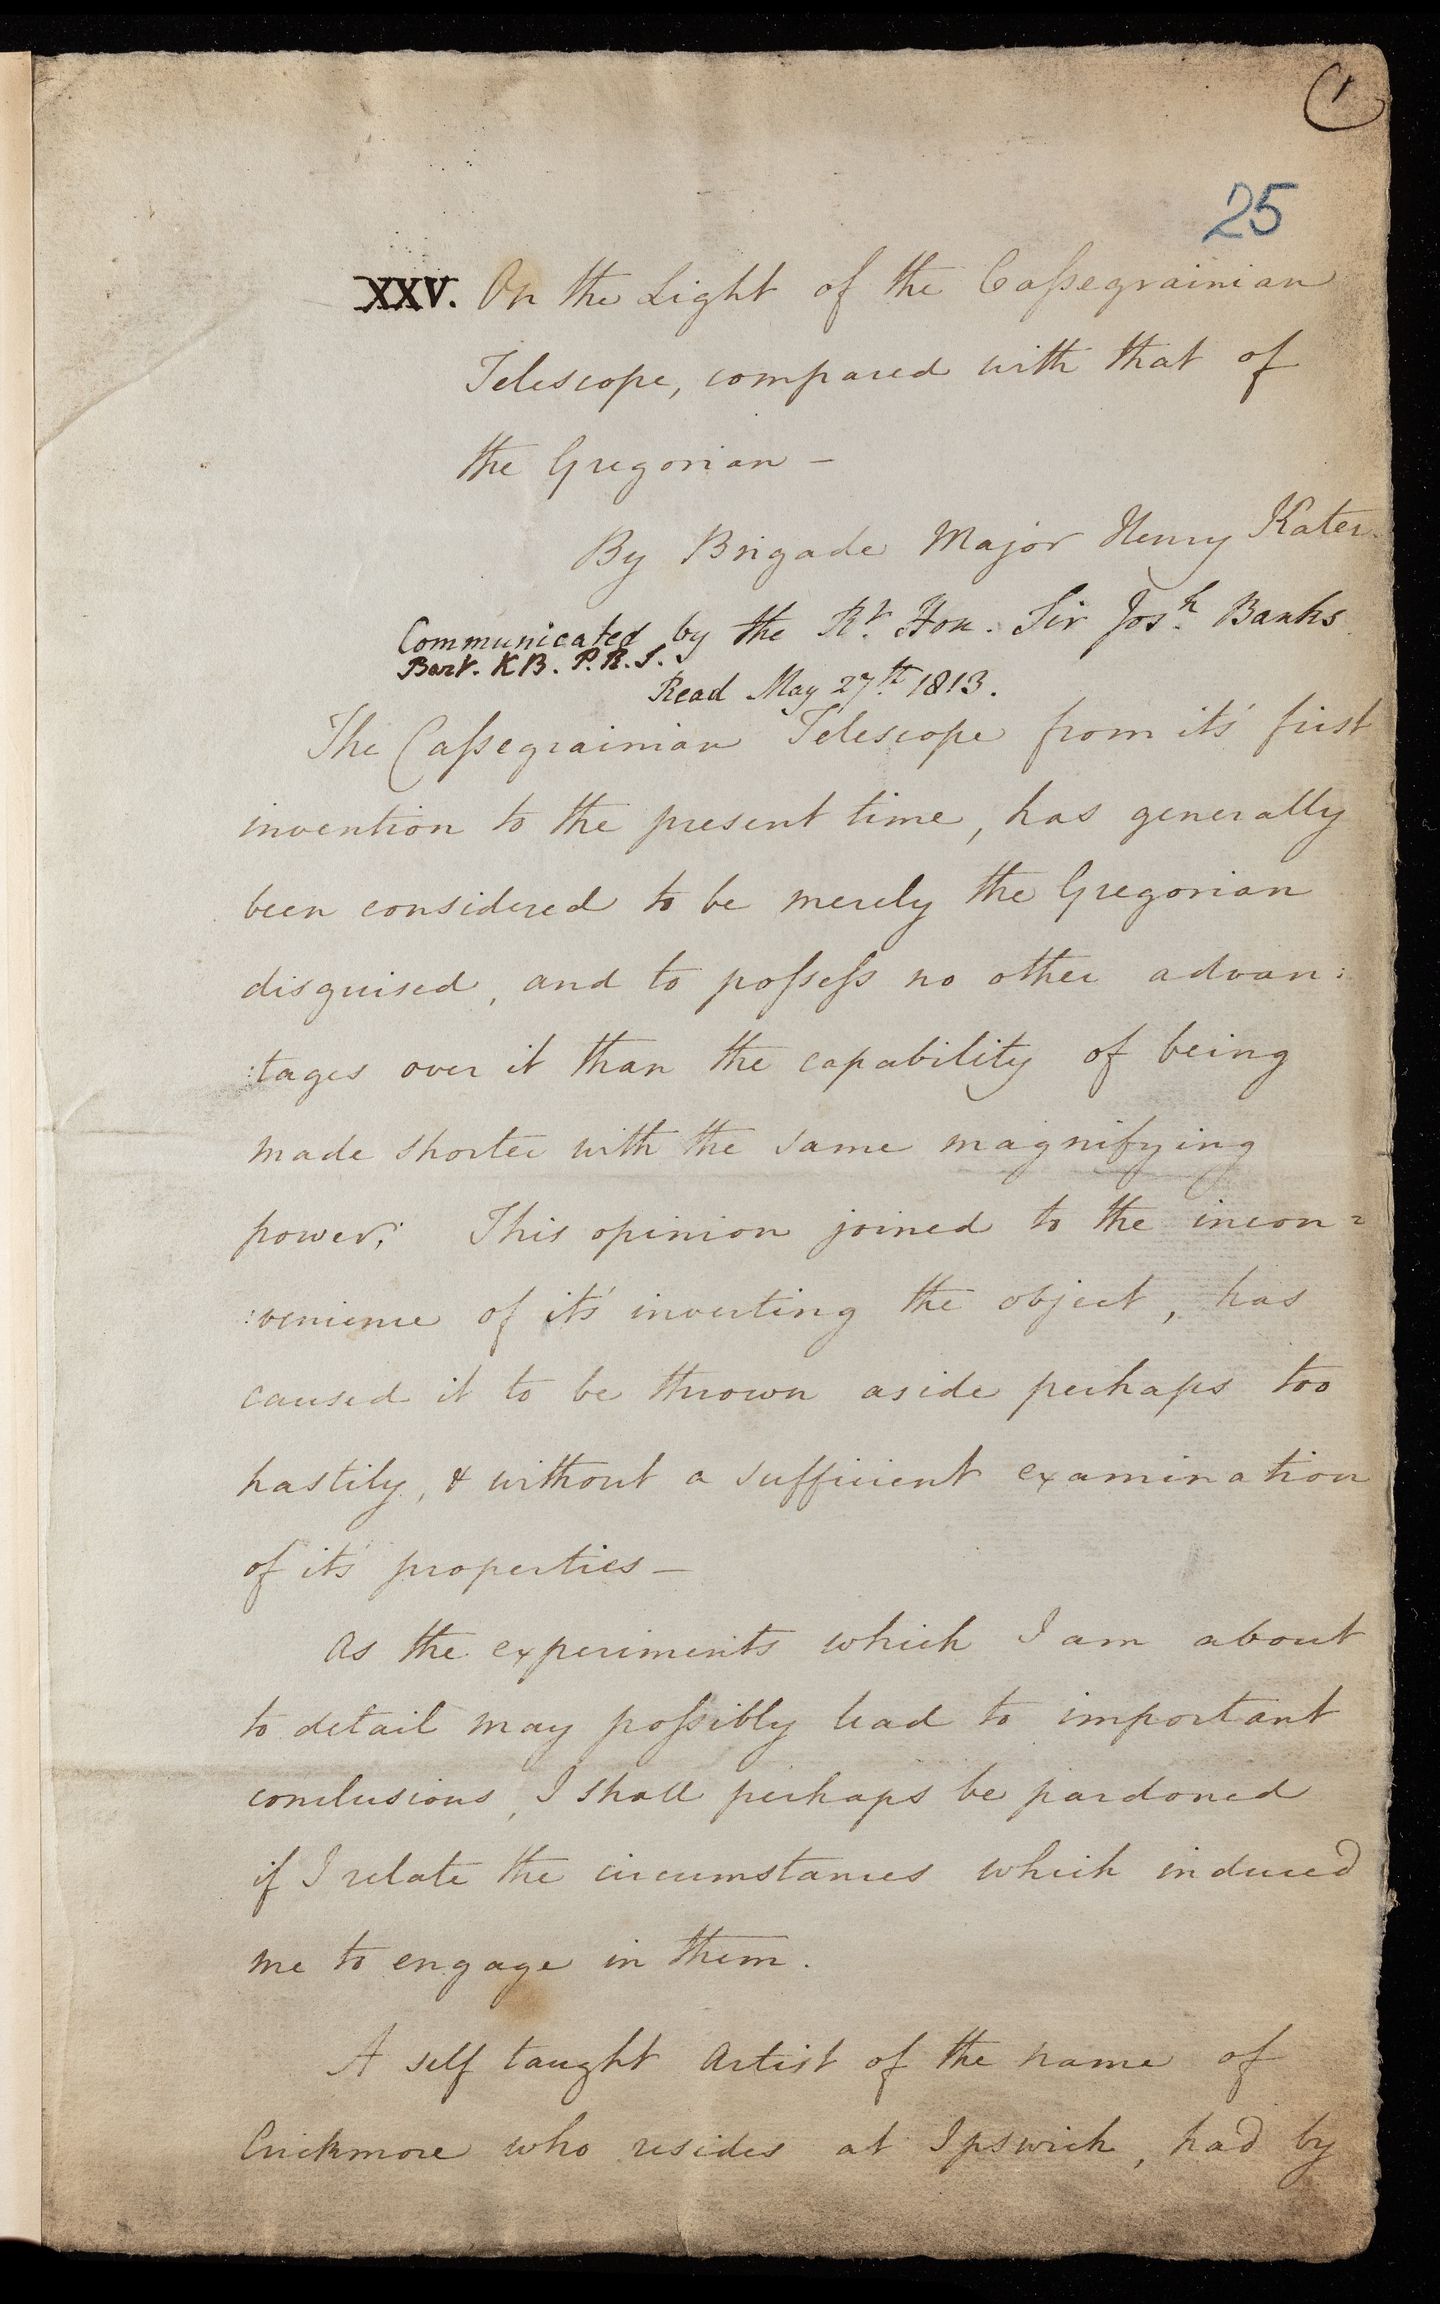 1
25
XXV. On the Light of the Caſsegrainian
Telescope, compared with that of
the Gregorian —
By Brigade Major Henry Kater.
Communicated by the Rt. Hon. Sir Josh. Banks
Bart. KB. P.R.S.
Read May 27th. 1813.
The Caſsegrainian Telescope from it's first
invention to the present time, has generally
been considered to be merely the Gregorian
disguised, and to poſseſs no other advan:
:tages over it than the capability of being
made shorter with the same magnifying
power; This opinion joined to the incon:
:venience of it's inverting the object, has
caused it to be thrown aside perhaps too
hastily, & without a sufficient examination
of it's properties —
As the experiments which I am about
to detail may poſsibly lead to important
conclusions, I shall perhaps be pardoned
if I relate the circumstances which induced
me to engage in them.
A self taught Artist of the name of
Crickmore who resides at Ipswich, had by